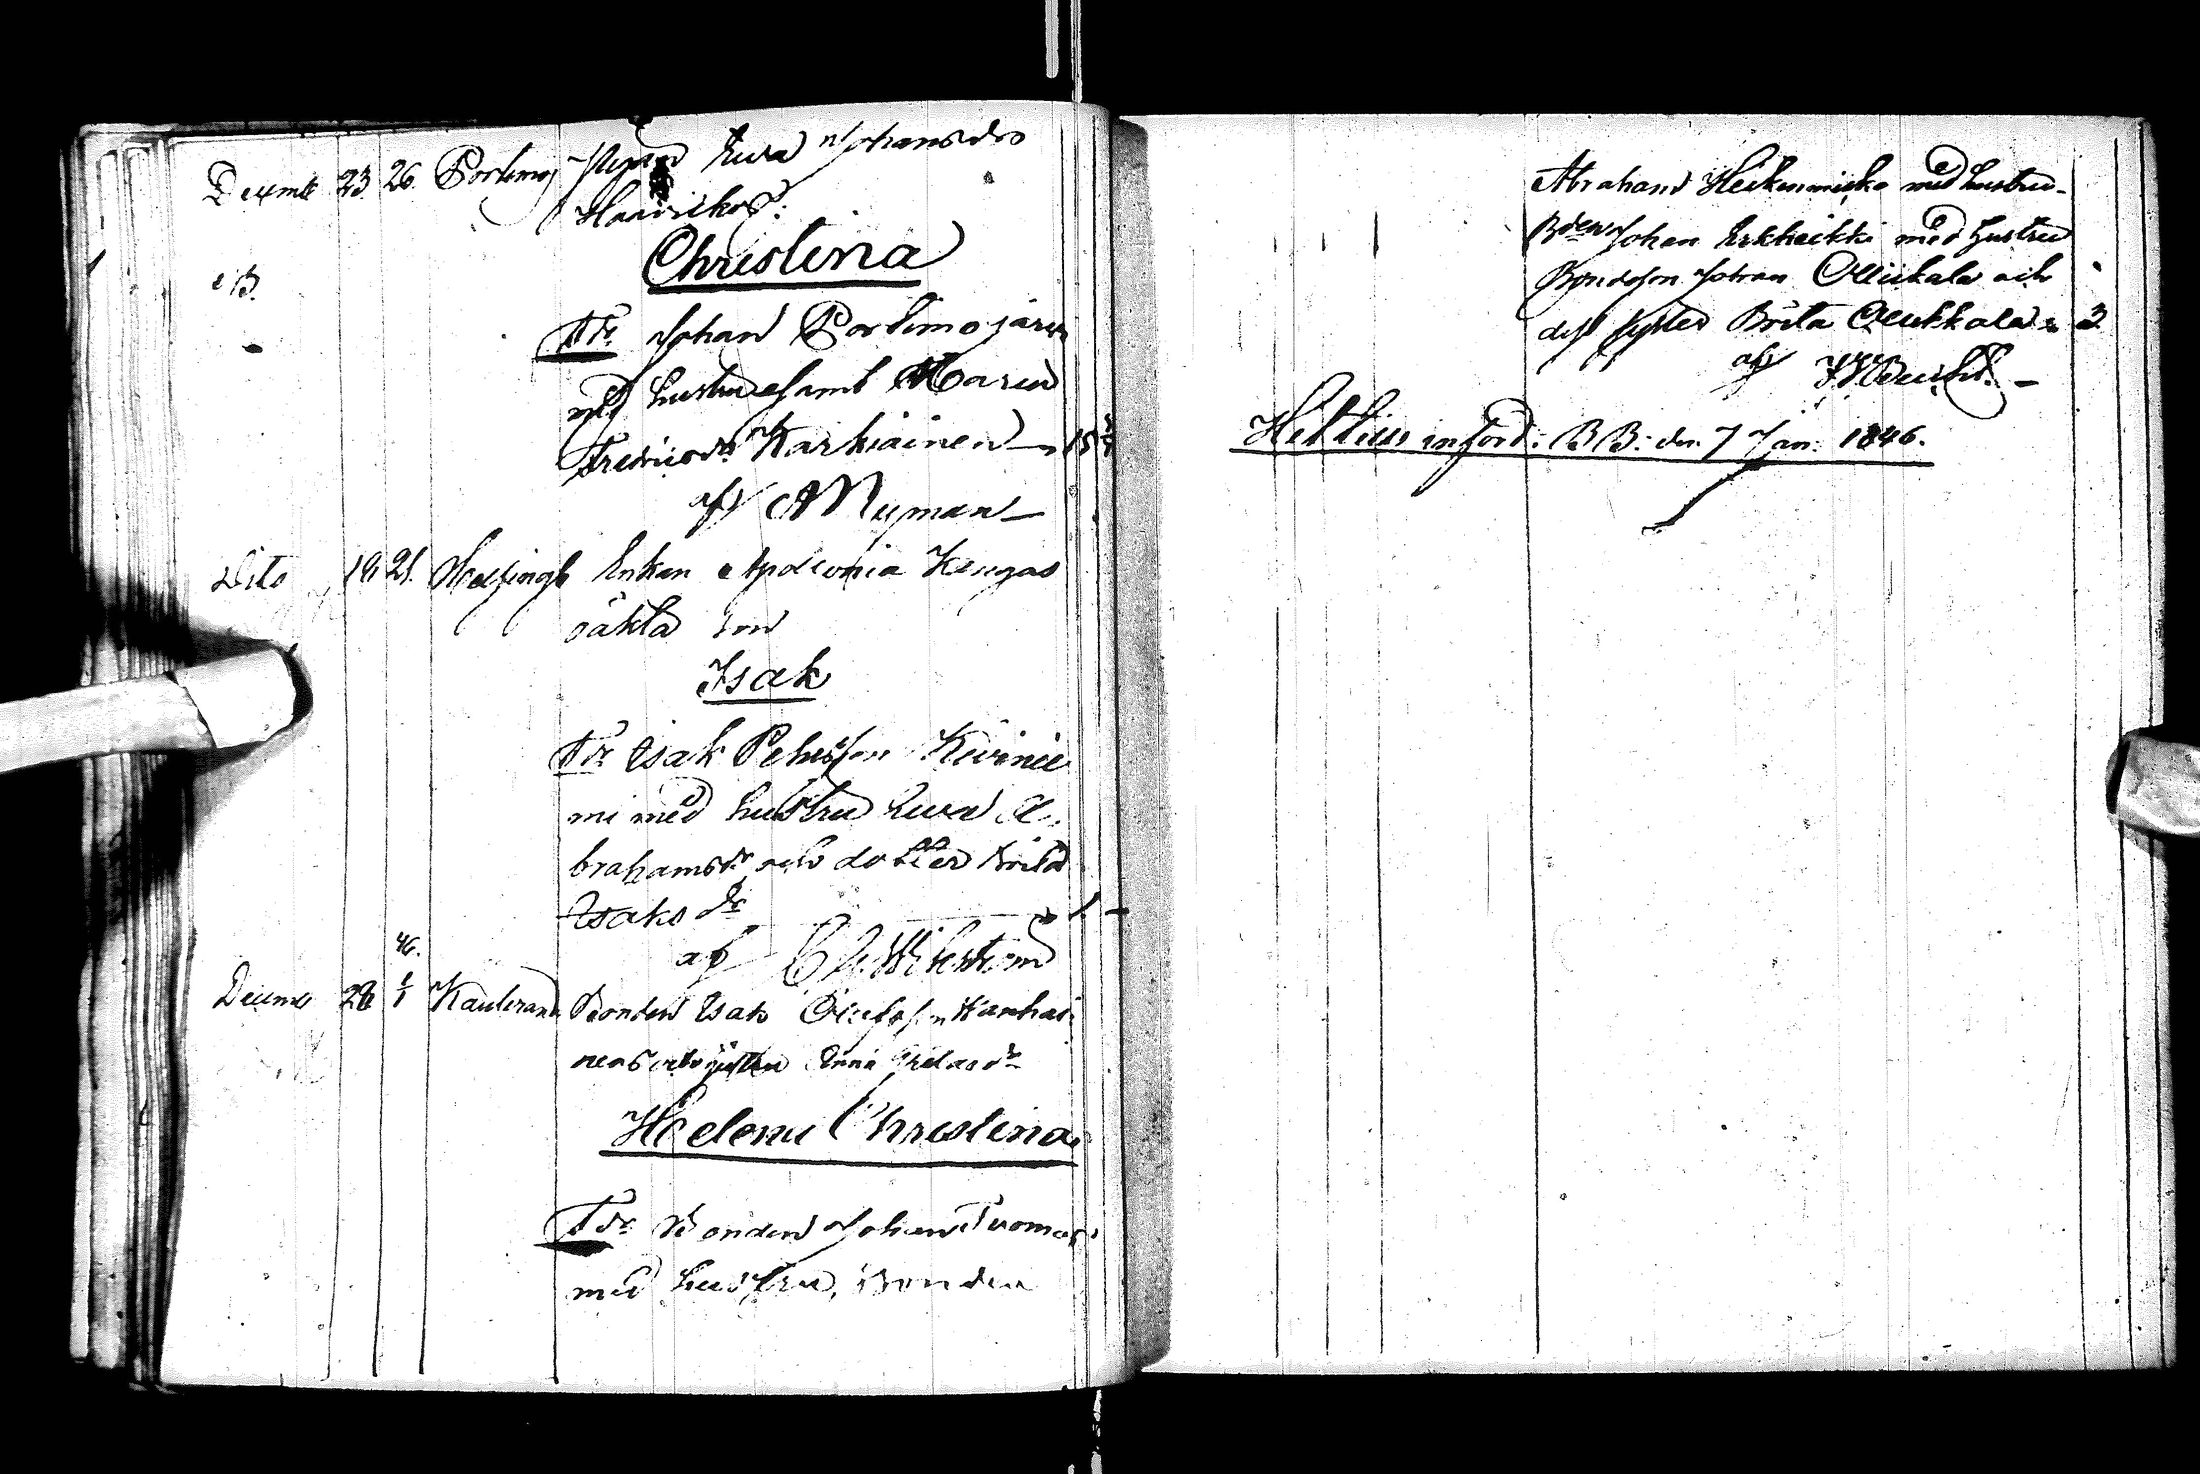 Decemb 23 26. Portimoj Pigan Eva Johansdr
Haarikos:
Christina
o:B.
Fdr. Johan Portimojärvi
med hustru samt Maria
Fredricsdr Karhiainen 15
af A Nyman
Dito 19 21. Enkan Apolonia Kengas
oäkta son
Isak
Fdr Isak Pehrsson Kivinie
mi med hustru Eva A
brahamsdr och dotter Brita
Isaks dr
af
46.
Decemb 28 1/1 Kauliran Bonden Isak Olofsson Karhai
nens och hustru Anna dr
Helena Christina
Fdr Bonden Johan Tuomas
med hustru, Bonden
Abraham med hustru
Bden Johan Erkheikki med hustru
Bondeson Johan Ollikkala och
dess syster Brita Ollikkala 3
af
Hittills införd: BB: den 7 Jan: 1846.